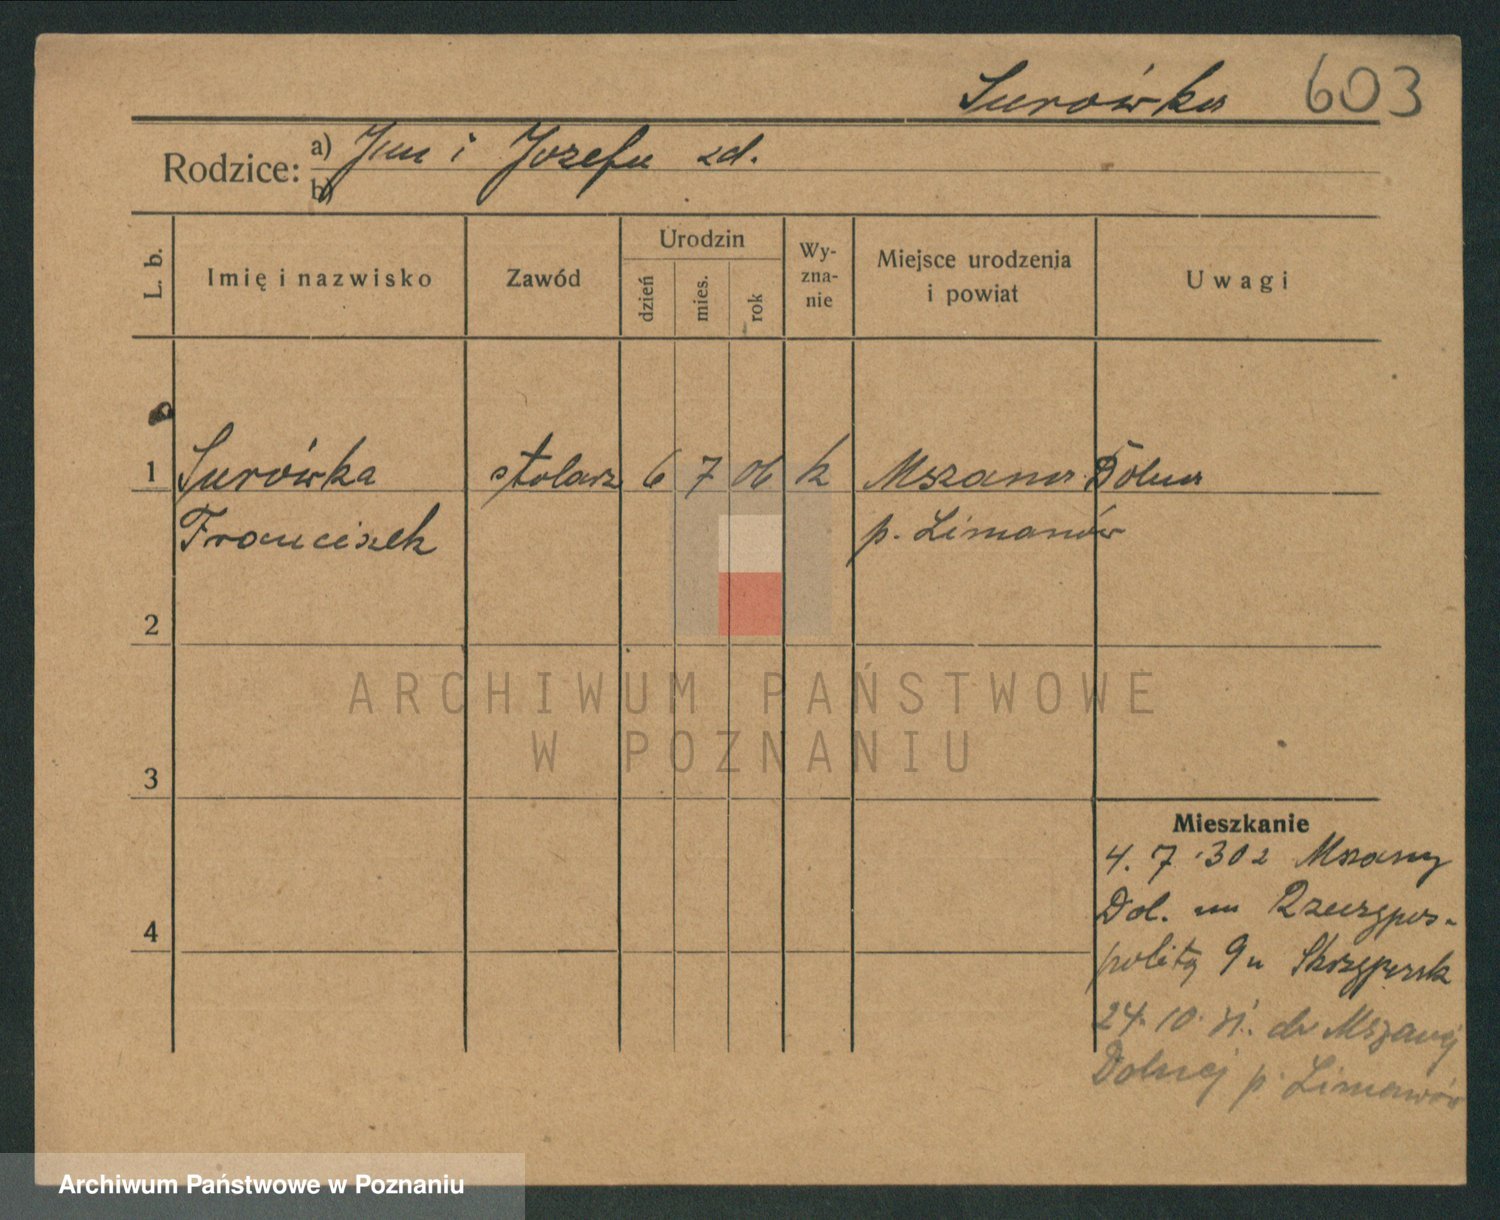 Surówka 603
Rodzice: a) Jan i Józefa zd.
b)
L. b. Imię i nazwisko Zawód Urodzin dzień mies. rok Wy-zna-nie Miejsce urodzenia i powiat Uwagi
1 Surówka stolarz 6 7 06 k Mszana Dolna
Franciszek p. Limanów
2
ARCHIWUM PAŃSTWOWE
W POZNANIU
3
Mieszkanie
4. 7. 30 z Mszany
Dol. na Rzeczypos-
4
politą 9 u Skrzypczak
24. 10. 31. do Mszany
Dolnej p. Limanów
Archiwum Państwowe w Poznaniu